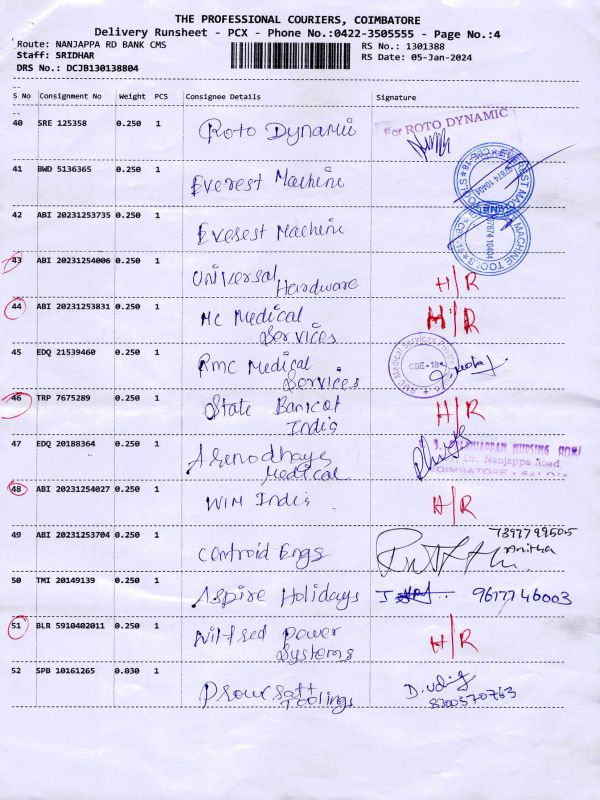 THE PROFESSIONAL COURIERS, COIMBATORE
Delivery Runsheet - PCX - Phone No.:0422-3505555 - Page No.:4
Route: NANJAPPA RD BANK CMS RS No.: 1301388
Staff: SRIDHAR RS Date: 05-Jan-2024
DRS No.: DCJB130138804
S No Consignment No Weight PCS Consignee Details Signature
40 SRE 125358 0.250 1 Roto Dynamic For ROTO DYNAMIC
41 BWD 5136365 0.250 1 Everest Machine
42 ABI 20231253735 0.250 1 Everest Machine
43 ABI 20231254006 0.250 1 Universal Hardware H/R
44 ABI 20231253831 0.250 1 MC Medical Services H/R
45 EDQ 21539460 0.250 1 RMC Medical Services CBE-18
46 TRP 7675289 0.250 1 State Bank of India H/R
47 EDQ 20188364 1 Medical NURSING HOME
Dr. Nanjappa Road
COIMBATORE
48 ABI 20231254027 0.250 1 WIM India H/R
49 ABI 20231253704 0.250 1 Centroid Engs 7397799505
Anitha
50 TMI 20149139 0.250 1 Aspire Holidays 9677746003
51 BLR 5910402011 0.250 1 Nilfsed Power Systems H/R
52 SPB 10161265 0.030 1 Toolings D. Udhay
8200570763